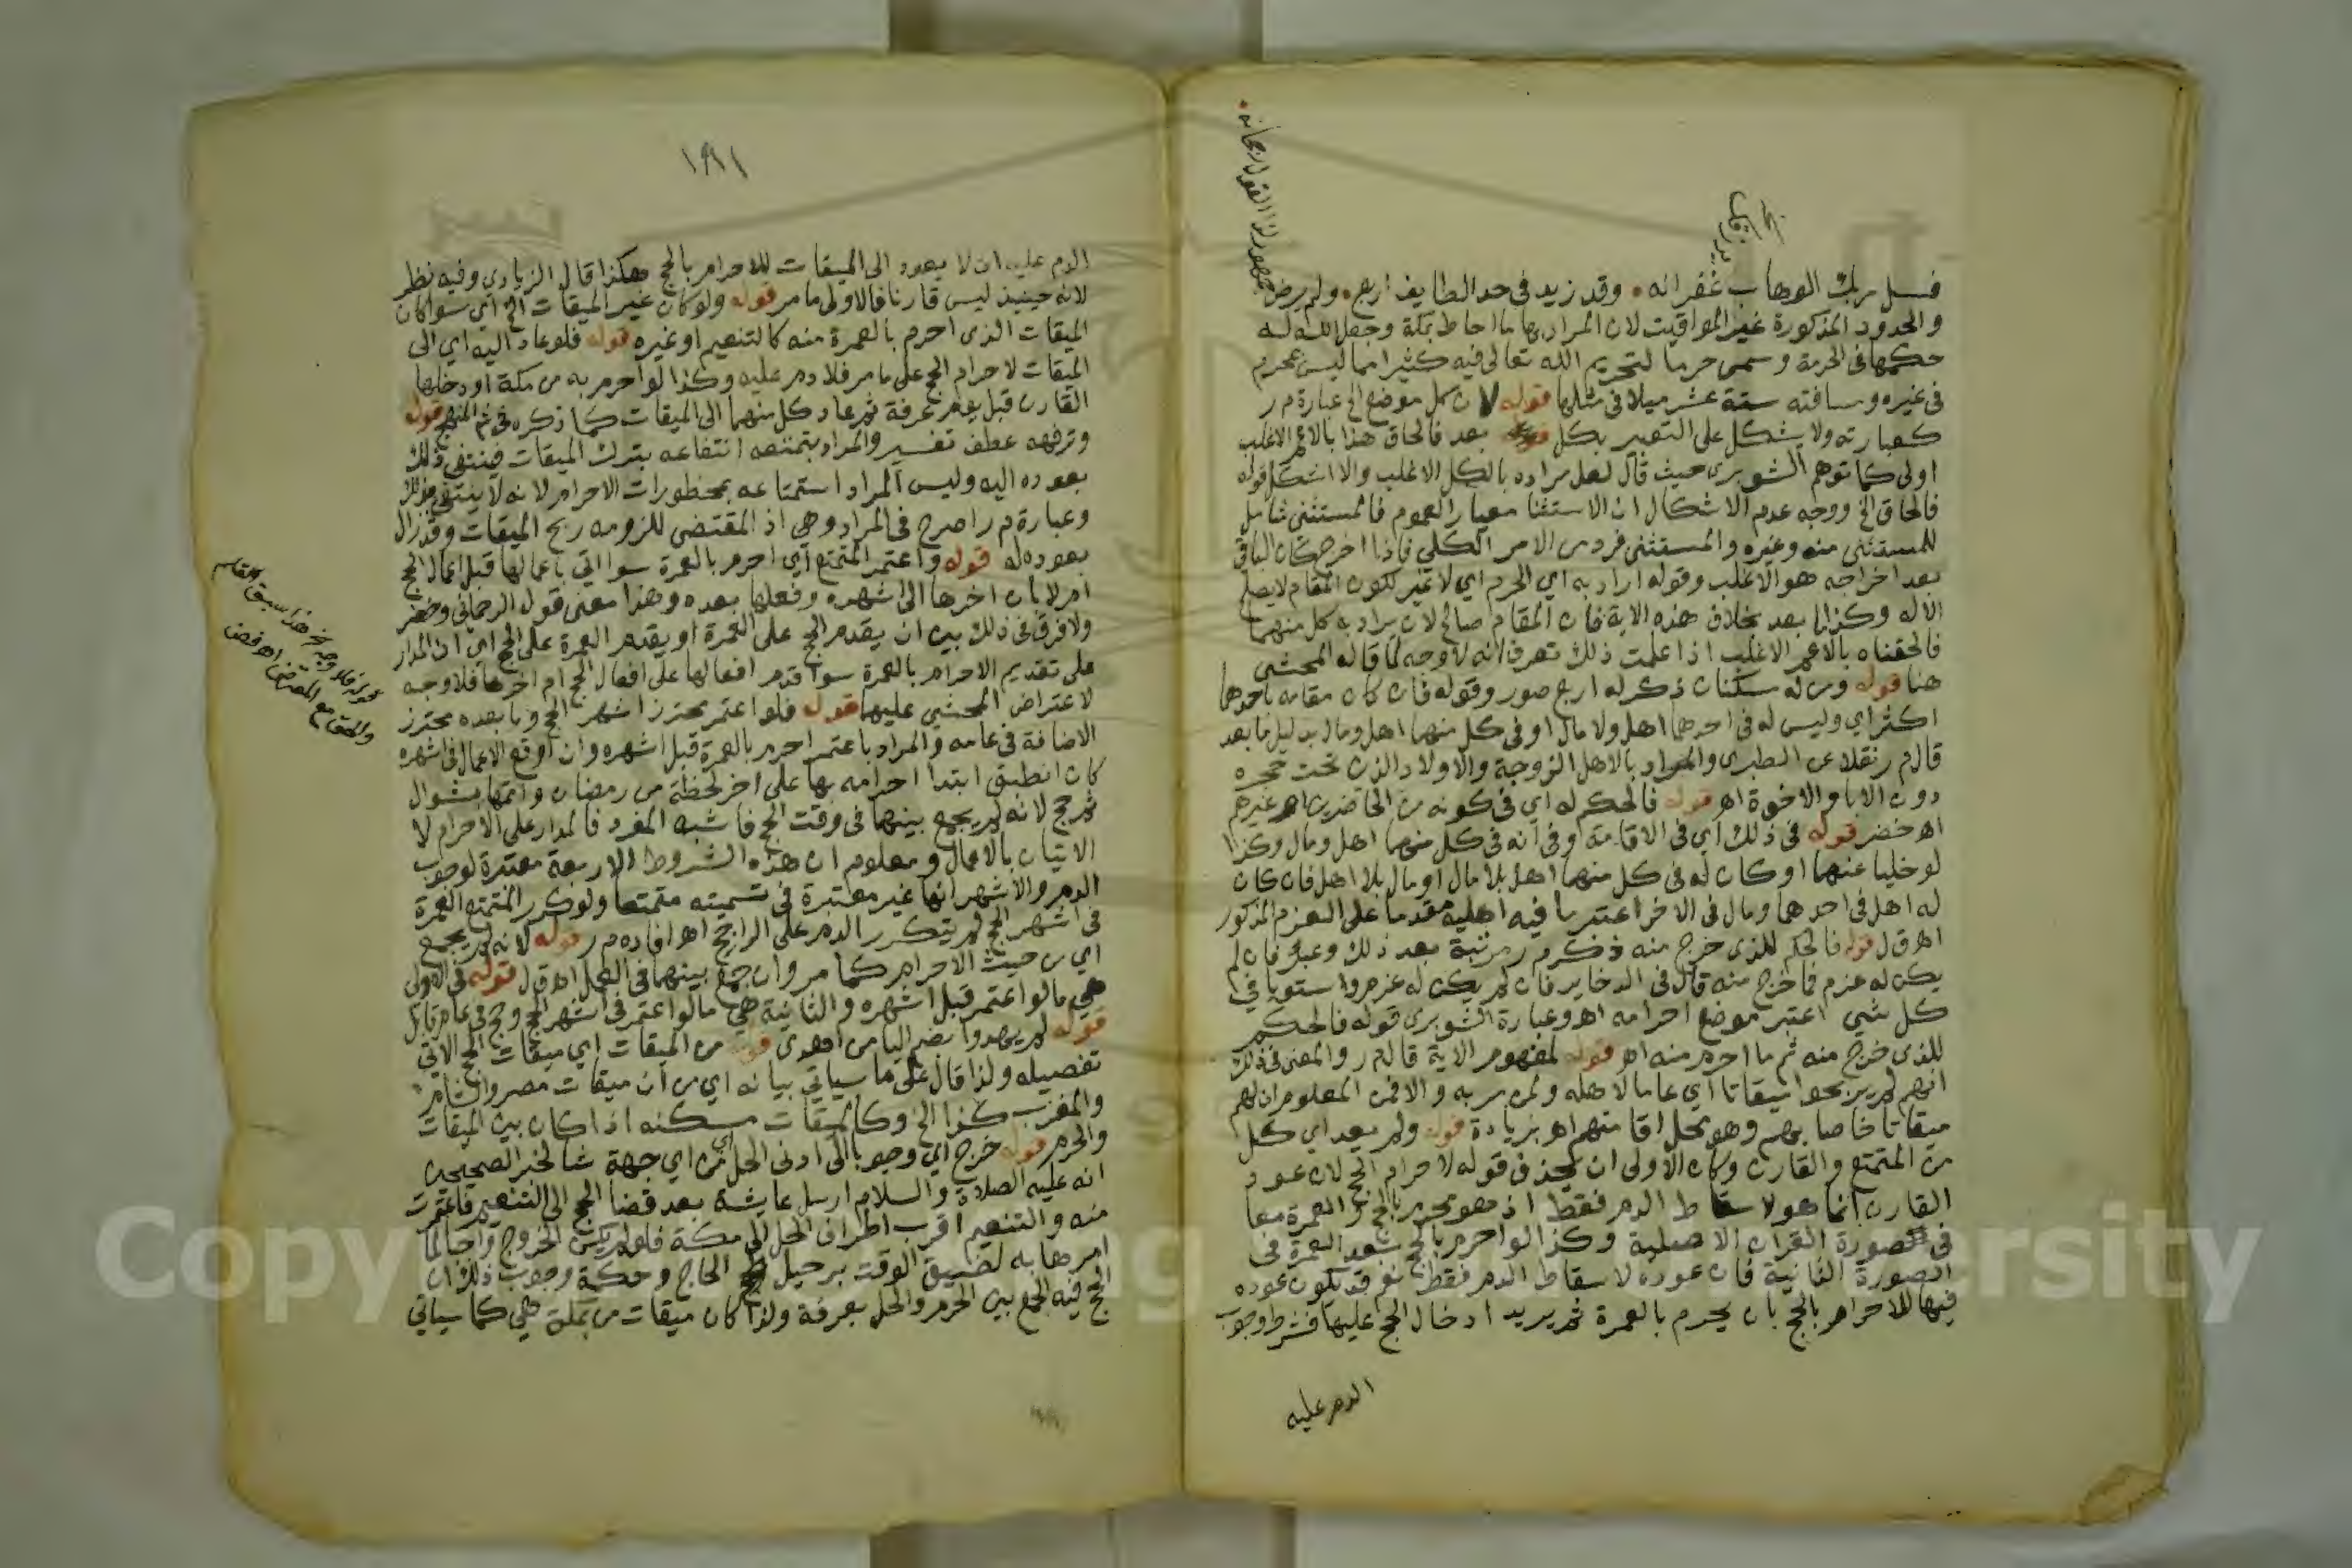 فسل ربك الوهاب غفرانه وقد زيد في حد الطايف اربع ولم يرض
جمهور لذا القول رجحانه
والحدود المذكورة غير المواقيت لان المراد بها ما احاط بمكة وجعل الله له
حكمها في الحرمة وسمي حرما لتحريم الله تعالى فيه كثيرا مما ليس بمحرم
في غيره ومسافته ستة عشر ميلا في مثلها قوله لان كل موضع الخ عبارة م ر
كعبارته ولا يشكل على التعبير بكل قوله بعد فالحاق هذا بالاعم الاغلب
اولى كما توهم الشوبري حيث قال لعل مراده بالكل الاغلب والا اشكل قوله
فالحاق الخ ووجه عدم الاشكال ان الاستثنا معيار العموم فالمستثنى شامل
للمستثنى منه وغيره والمستثنى فرد من الامر الكلي فاذا اخرج كان الباقي
بعد اخراجه هو الاغلب وقوله اراد به اي الحرم اي لا غير لكون المقام لا يصلح
الا له وكذا ما بعد بخلاف هذه الاية فان المقام صالح لان يراد به كل منهما
فالحقناه بالاعم الاغلب اذا علمت ذلك تعرف انه لا وجه لما قاله المحشي
هنا قوله ومن له مسكنان ذكر له اربع صور وقوله فان كان مقامه باحدهما
اكثر اي وليس له في احدهما اهل ولا مال او في كل منهما اهل ومال بدليل ما بعد
قال م ر نقلا عن الطبري والمراد بالاهل الزوجة والاولاد الذين تحت حجره
دون الابا والاخوة اهـ قوله فالحكم له اي في كونه من الحاضرين او غيرهم
اهـ خضر قوله في ذلك اي في الاقامة وفي انه في كل منهما اهل ومال وكذا
لو خليا عنهما او كان له في كل منهما اهل بلا مال او مال بلا اهل فان كان
له اهل في احدهما ومال في الاخر اعتبر ما فيه اهله مقدما على العزم المذكور
اهـ ق ل قوله فالحكم للذي خرج منه ذكر م ر مرتبة بعد ذلك وعبارته فان لم
يكن له عزم فما خرج منه قال في الذخاير فان لم يكن له عزم واستويا في
كل شي اعتبر موضع احرامه اهـ وعبارة الشوبري قوله فالحكم
للذي خرج منه ثم ما احرم منه اهـ قوله لمفهوم الاية قال م ر والمعنى في ذلك
انهم لم يربحوا ميقاتا اي عاما لاهله ولمن مر به والا فمن المعلوم ان لهم
ميقاتا خاصا بهم وهو محل اقامتهم اهـ بزيادة قوله ولم يعد اي كل
من المتمتع والقارن وكان الاولى ان يحذف قوله لاحرام الحج لان عود
القارن انما هو لاسقاط الدم فقط اذ هو محرم بالحج والعمرة معا
في صورة القران الاصلية وكذا لو احرم بالحج بعد العمرة في
الصورة الثانية فان عوده لاسقاط الدم فقط نعم قد يكون عوده
فيها للاحرام بالحج بان يحرم بالعمرة ثم يريد ادخال الحج عليها فشرط وجوب
الدم عليه
١٨١
الدم عليه ان لا يعود الى الميقات للاحرام بالحج هكذا قال الزيادي وفيه نظر
لانه حينيذ ليس قارنا فالاولى ما مر قوله ولو كان غير الميقات الخ اي سوا كان
الميقات الذي احرم بالعمرة منه كالتنعيم او غيره قوله فلو عاد اليه اي الى
الميقات لاحرام الحج على ما مر فلا دم عليه وكذا لو احرم به من مكة او دخلها
القارن قبل يوم عرفة ثم عاد كل منهما الى الميقات كما ذكره في ثم المنهج قوله
وترفهه عطف تفسير والمراد بتمتعه انتفاعه بترك الميقات فينتفي ذلك
بعوده اليه وليس المراد استمتاعه بمحظورات الاحرام لانه لا ينتفي بذلك
وعبارة م ر اصرح في المراد وهي اذ المقتضي للزومه ربح الميقات وقد زال
بعوده له قوله واعتمر المتمتع اي احرم بالعمرة سوا اتي باعمالها قبل اعمال الحج
ام لا بان اخرها الى اشهره وفعلها بعده وهذا معنى قول الرحماني وخضر
ولا فرق في ذلك بين ان يقدم الحج على العمرة او يقدم العمرة على الحج اي ان المدار
على تقديم الاحرام بالعمرة سوا قدم افعالها على افعال الحج ام اخرها فلا وجه
لاعتراض المحشي عليهما قوله فلو اعتمر محترز اشهر الحج وما بعده محترز
الاضافة في عامه والمراد باعتمر احرم بالعمرة قبل اشهره وان اوقع الاعمال في اشهره
كان انطبق ابتدا احرامه بها على اخر لحظة من رمضان واتمها بشوال
ثم حج لانه لم يجمع بينهما في وقت الحج فاشبه المفرد فالمدار على الاحرام لا
الاتيان بالاعمال ومعلوم ان هذه الشروط الاربعة معتبرة لوجوب
الدم والاشهر انها غير معتبرة في تسميته متمتعا ولو كرر المتمتع العمرة
في اشهر الحج لم يتكرر الدم على الراجح اهـ افاده م ر قوله لانه لم يجمع
اي من حيث الاحرام كما مر وان جمع بينهما في الفعل اهـ ق ل قوله في الاولى
هي ما لو اعتمر قبل اشهره والثانية هي ما لو اعتمر في اشهر الحج وحج في عام قابل
قوله لم يهدوا بضم اليا من اهدى قوله من الميقات اي ميقات الحج الاتي
تفصيله ولذا قال على ما سياتي بيانه اي من ان ميقات مصر والشام
والمغرب كذا الخ وكالميقات مسكنه اذا كان بين الميقات
والحرم قوله خرج اي وجوبا الى ادنى الحل اي من اي جهة شا لخبر الصحيحين
انه عليه الصلاة والسلام ارسل عايشة بعد قضا الحج الى التنعيم فاعتمرت
منه والتنعيم اقرب اطراف الحل الى مكة فلو لم يكن الخروج واجبا لما
امرها به لضيق الوقت برحيل الحاج وحكمة وجوب ذلك ان
الحج فيه الجمع بين الحرم والحل بعرفة ولذا كان ميقات من بمكة هي كما سياتي
Copy g ersity